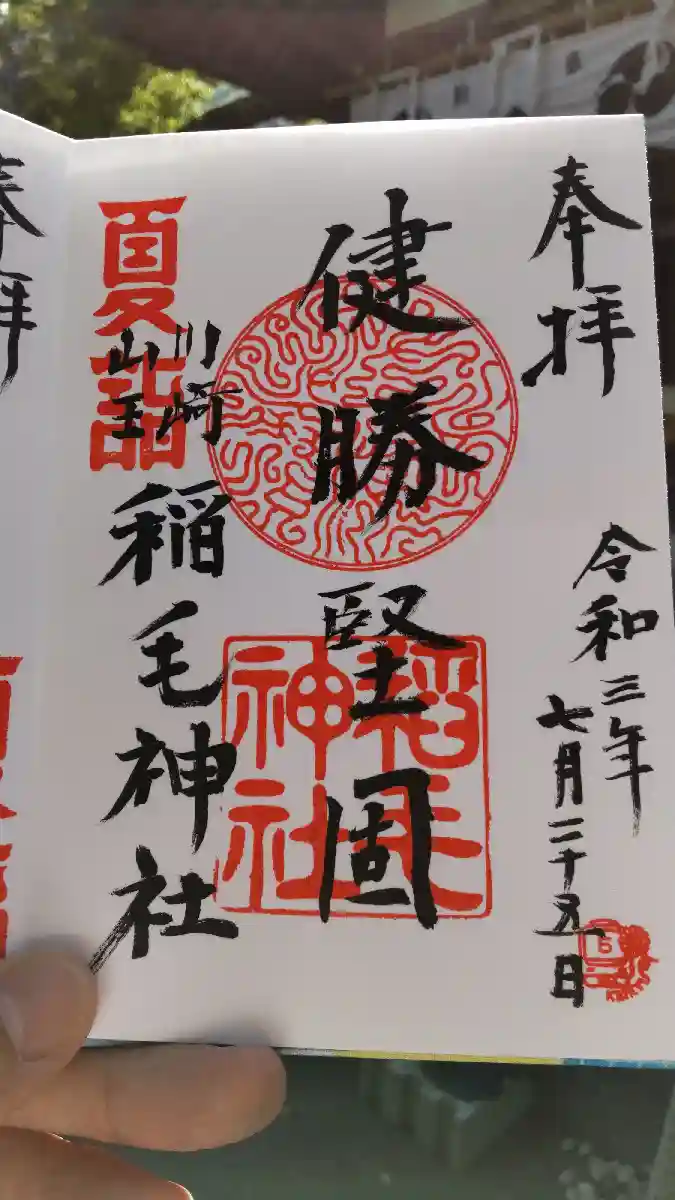 奉拝
令和三年
七月二十五日
健勝堅固
稲毛神社
夏詣
川崎
山王
稲毛神社
奉拝